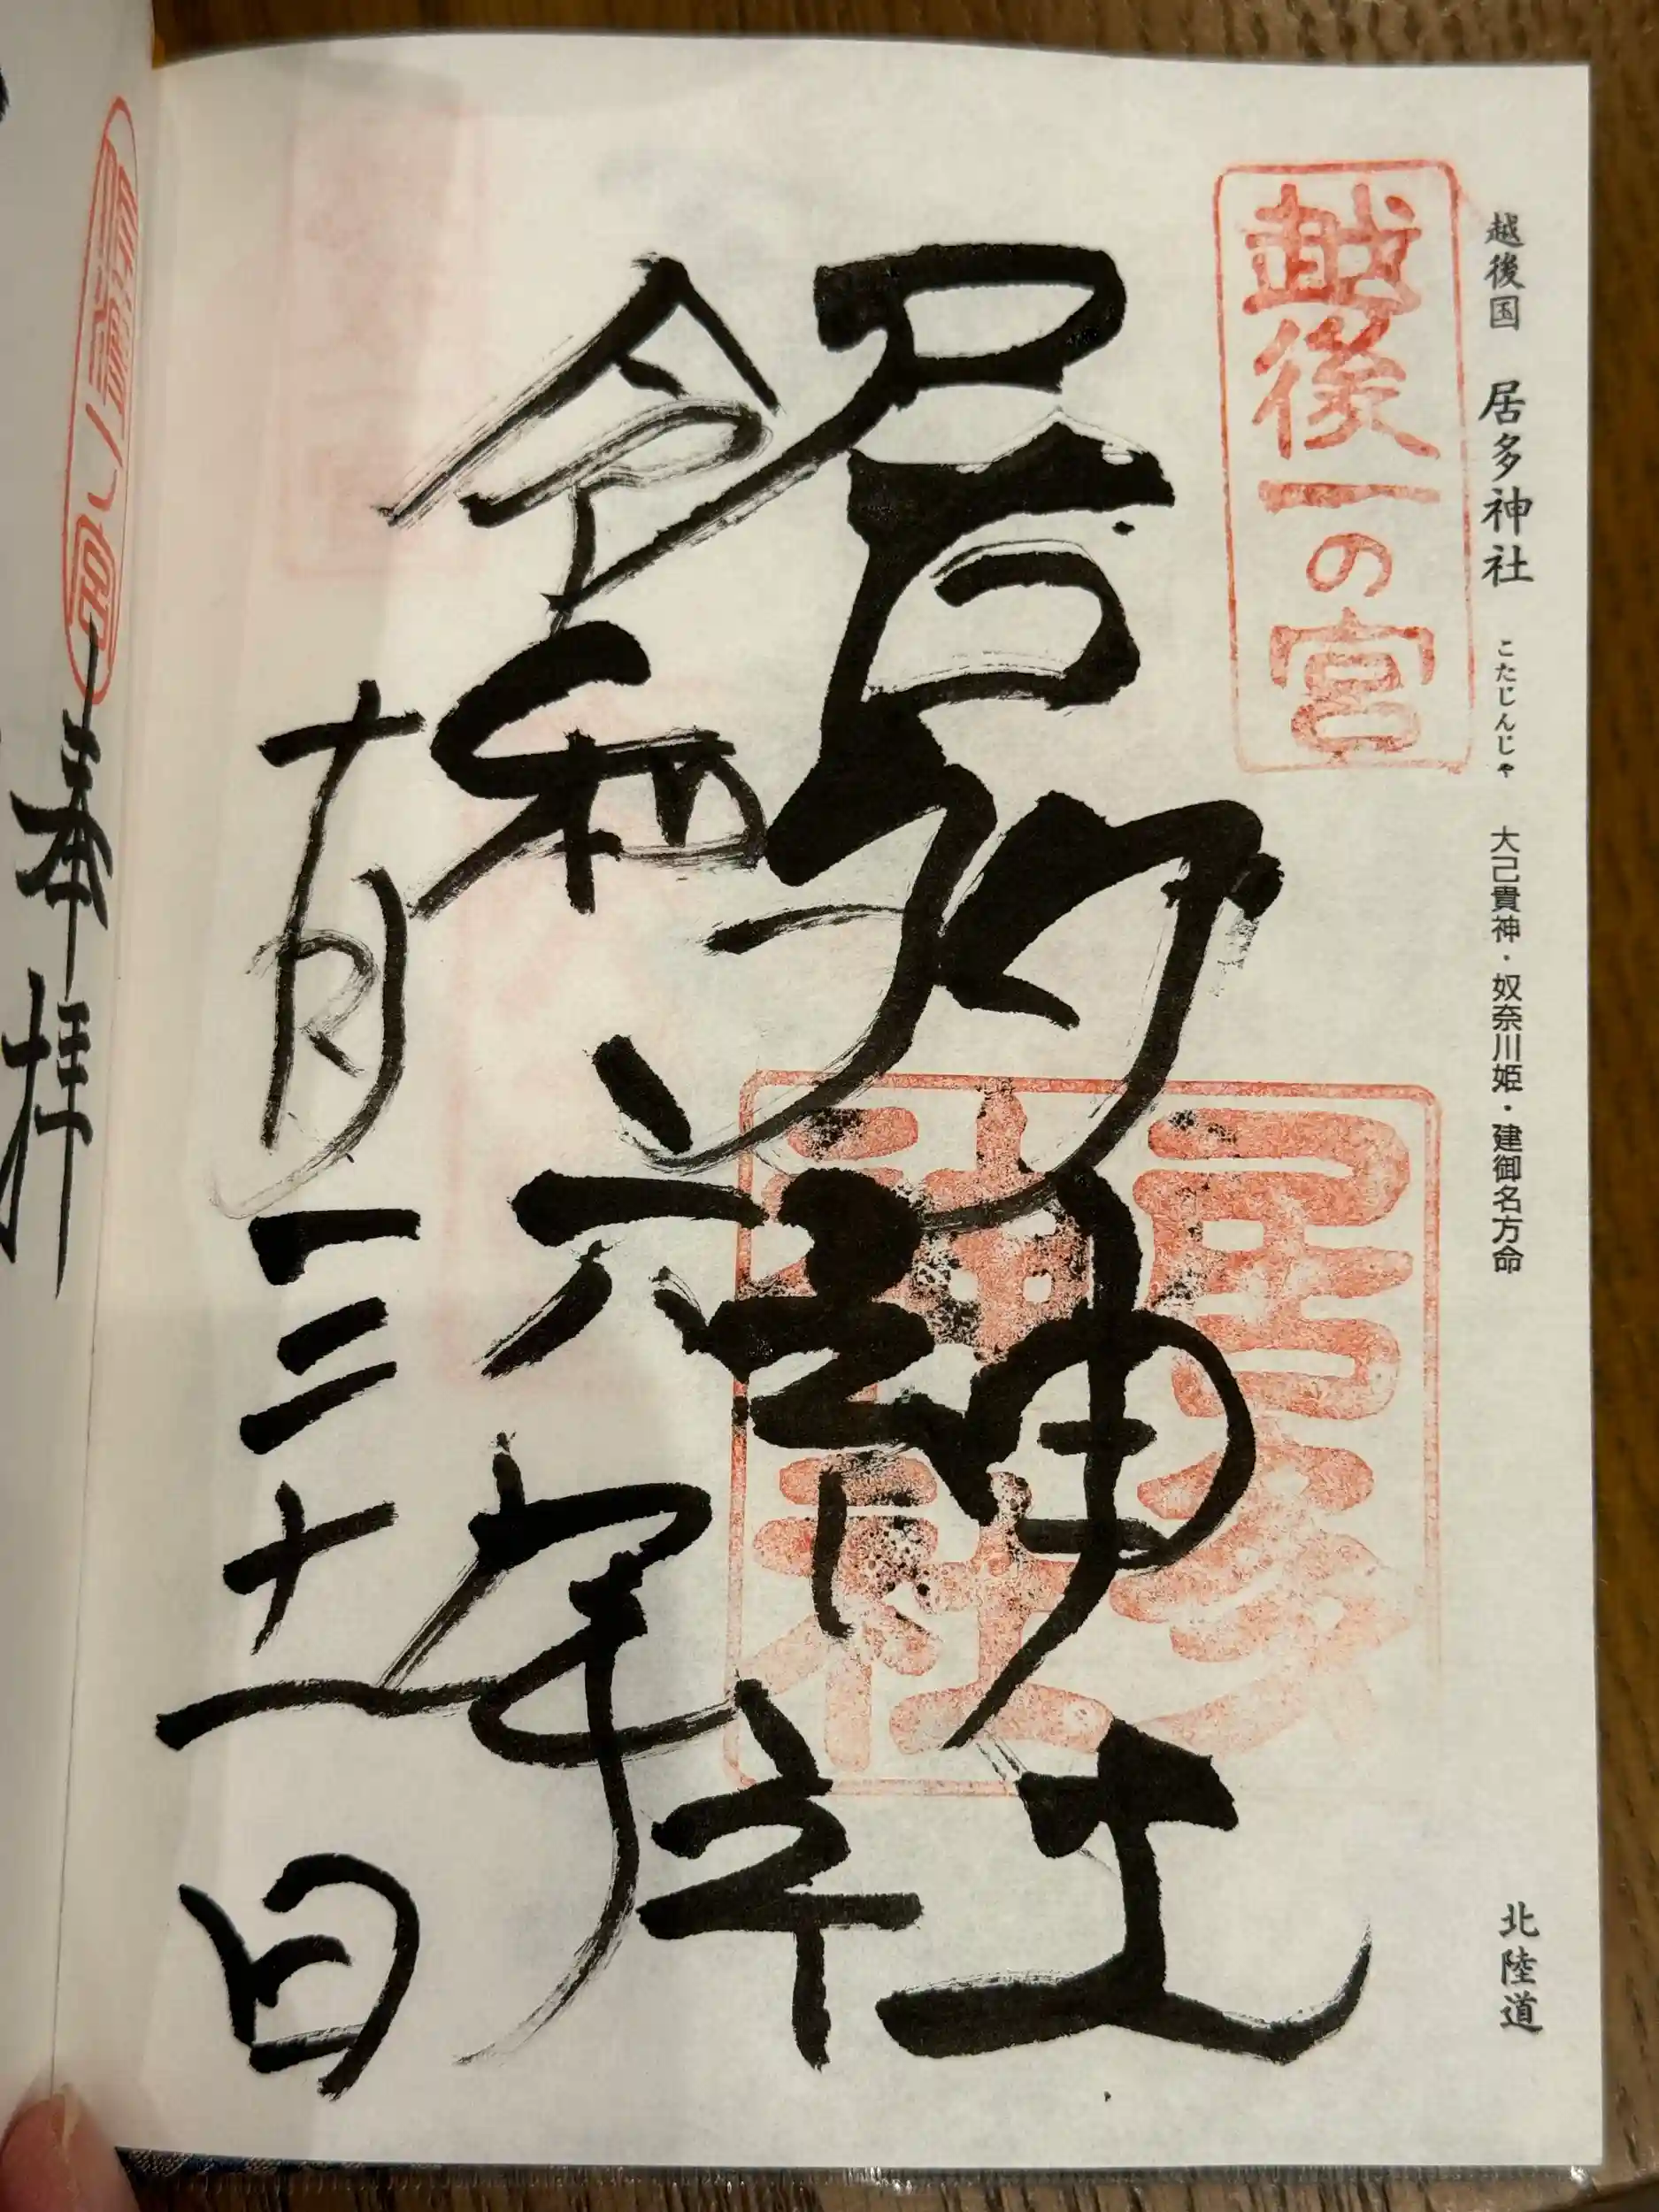 越後国 居多神社 こたじんじゃ 大己貴神・奴奈川姫・建御名方命 北陸道
越後一の宮
居多神社
居多神社
令和六年
十月三十一日
奉拝